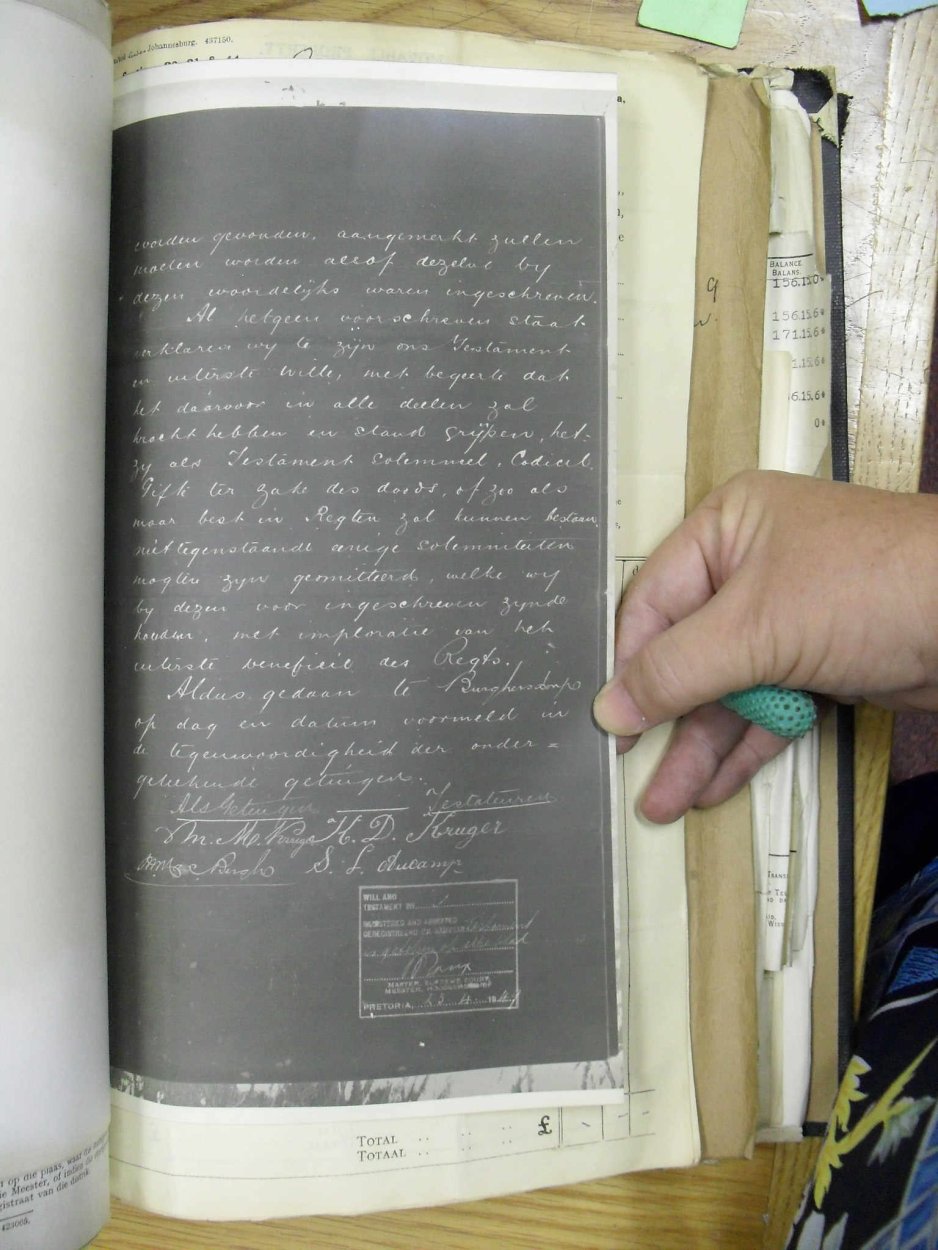 Johannesburg. 437150.
worden gevonden, aangemerkt zullen
moeten worden alsof dezelve by
dezen woordelijks waren ingeschreven.
Al hetgeen voorschreven staat
verklaren wy te zijn ons Testament
en uiterste Wille, met begeerte dat
het daarvoor in alle deelen zal
kracht hebben en stand grijpen, het-
zy als Testament Solemneel, Codicil,
Gift ter zake des doods, of zoo als
maar best in Regten zal kunnen bestaan,
niettegenstaande eenige solemniteiten
mogten zyn geomitteerd, welke wy
by dezen voor ingeschreven zynde
houden, met imploratie van het
uiterste beneficie des Regts.
Aldus gedaan te Burghersdorp
op dag en datum voormeld in
de tegenwoordigheid der onder =
geteekende getuigen.
Als Getuigen Testateuren
M. Kruger H. D. Kruger
Burgh S. L. Aucamp
WILL AND
TESTAMENT NO.
REGISTERED AND
GEREGISTREERD EN
MASTER, SUPREME COURT,
MEESTER, HOOGGEREGSHOF
PRETORIA, 23. 4. 194
BALANCE
BALANS.
156.15.0*
156.15.6*
171.15.6*
1.15.6*
6.15.6*
0*
TOTAL .. .. .. £
TOTAAL .. .. ..
op die plaas, waar die
ie Meester, of indien die
gistraat van die distrik.
423005.